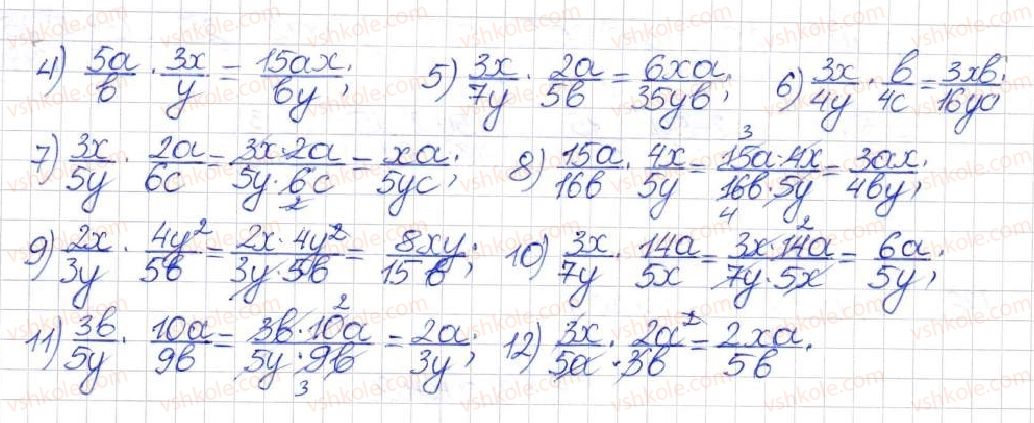 4) 5a/b · 3x/y = 15ax/by; 5) 3x/7y · 2a/5b = 6xa/35yb; 6) 3x/4y · b/4c = 3xb/16yc;
7) 3x/5y · 2a/6c = 3x·2a/5y·6c = xa/5yc; 8) 15a/16b · 4x/5y = 15a·4x/16b·5y = 3ax/4by;
9) 2x/3y · 4y²/5b = 2x·4y²/3y·5b = 8xy/15b; 10) 3x/7y · 14a/5x = 3x·14a/7y·5x = 6a/5y;
11) 3b/5y · 10a/9b = 3b·10a/5y·9b = 2a/3y; 12) 3x/5a · 2a²/3b = 2xa/5b.